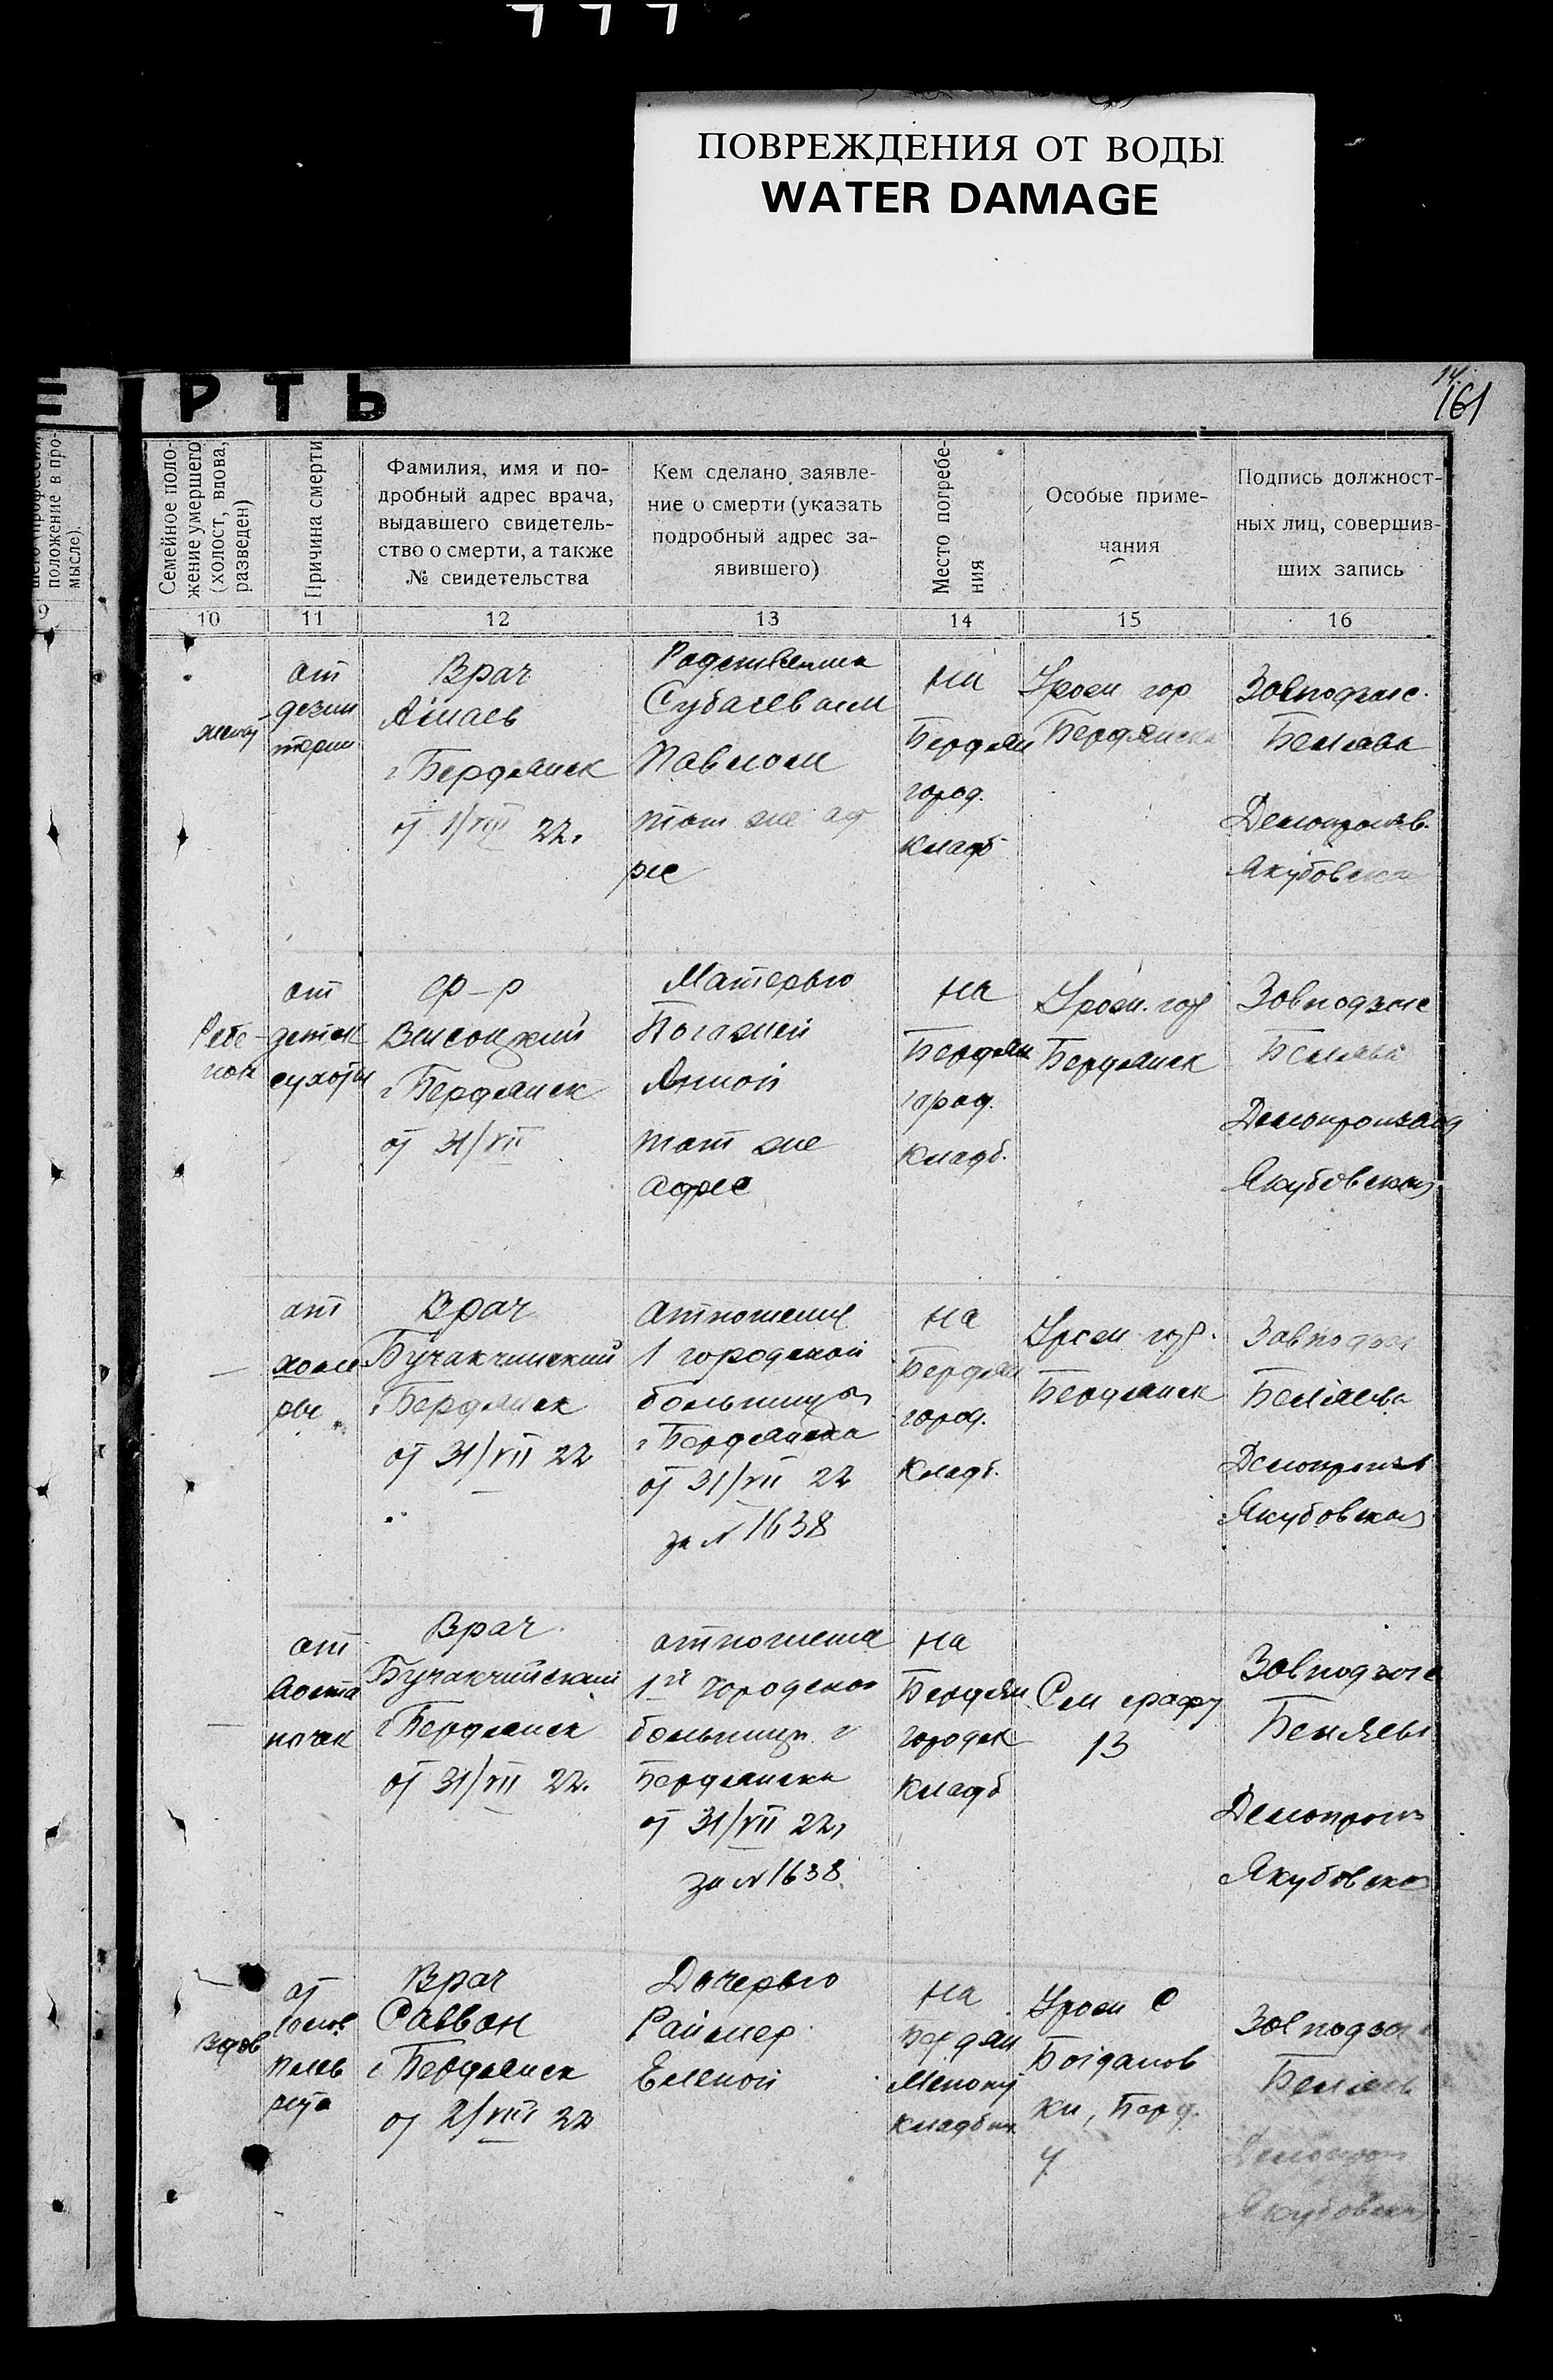 ПОВРЕЖДЕНИЯ ОТ ВОДЫ
WATER DAMAGE
РТЬ
14.
161
положение в про-
мысле).
9
Семейное поло-
жение умершего
(холост, вдова,
разведен)
Причина смерти
Фамилия, имя и по-
дробный адрес врача,
выдавшего свидетель-
ство о смерти, а также
№ свидетельства
Кем сделано заявле-
ние о смерти (указать
подробный адрес за-
явившего)
Место погребе-
ния
Особые приме-
чания
Подпись должност-
ных лиц, совершив-
ших запись
10
11
12
13
14
15
16
от
Врач
г Бердянск
от 1/VIII 22.
Павлом
тот же ад
рес
на
Бердян
город.
кладб
Уром гор
Бердянска
Завподзагс.
Делопроизв.
Якубовская
Ребе-
нок
от
детск
сухоты
Ф-р
Высоцкий
г Бердянск
от 31/VII
Матерью
Анной
тот же
адрес
на
Бердян
город.
кладб.
Уром. гор
Бердянск
Завподзагс
Якубовская
от
холе
ры
Врач
Бучакчийский
г Бердянск
от 31/VII 22
отношение
1 городской
больницы
г Бердянска
от 31/VII 22
за № 1638
на
Бердян
город.
кладб.
Уром. гор.
Бердянск
Завподзагс
Беляева
Делопроизв
Якубовская
от
Врач
Бучакчийский
г Бердянск
от 31/VII 22.
отношения
1й городской
больницы г
Бердянска
от 31/VII 22,
за № 1638.
на
Бердян
городск
кладб
См графу
13
Завподзагс
Делопроиз
Якубовская
вдов
от
плев
рита
Врач
Саввон
г Бердянск
от 2/VIII 22
Дочерью
Раймер
Еленой
на
Бердян
кладбищ
Уром с
Богданов
ки, Берд.
у
Завподзагс
Делопроиз
Якубовская